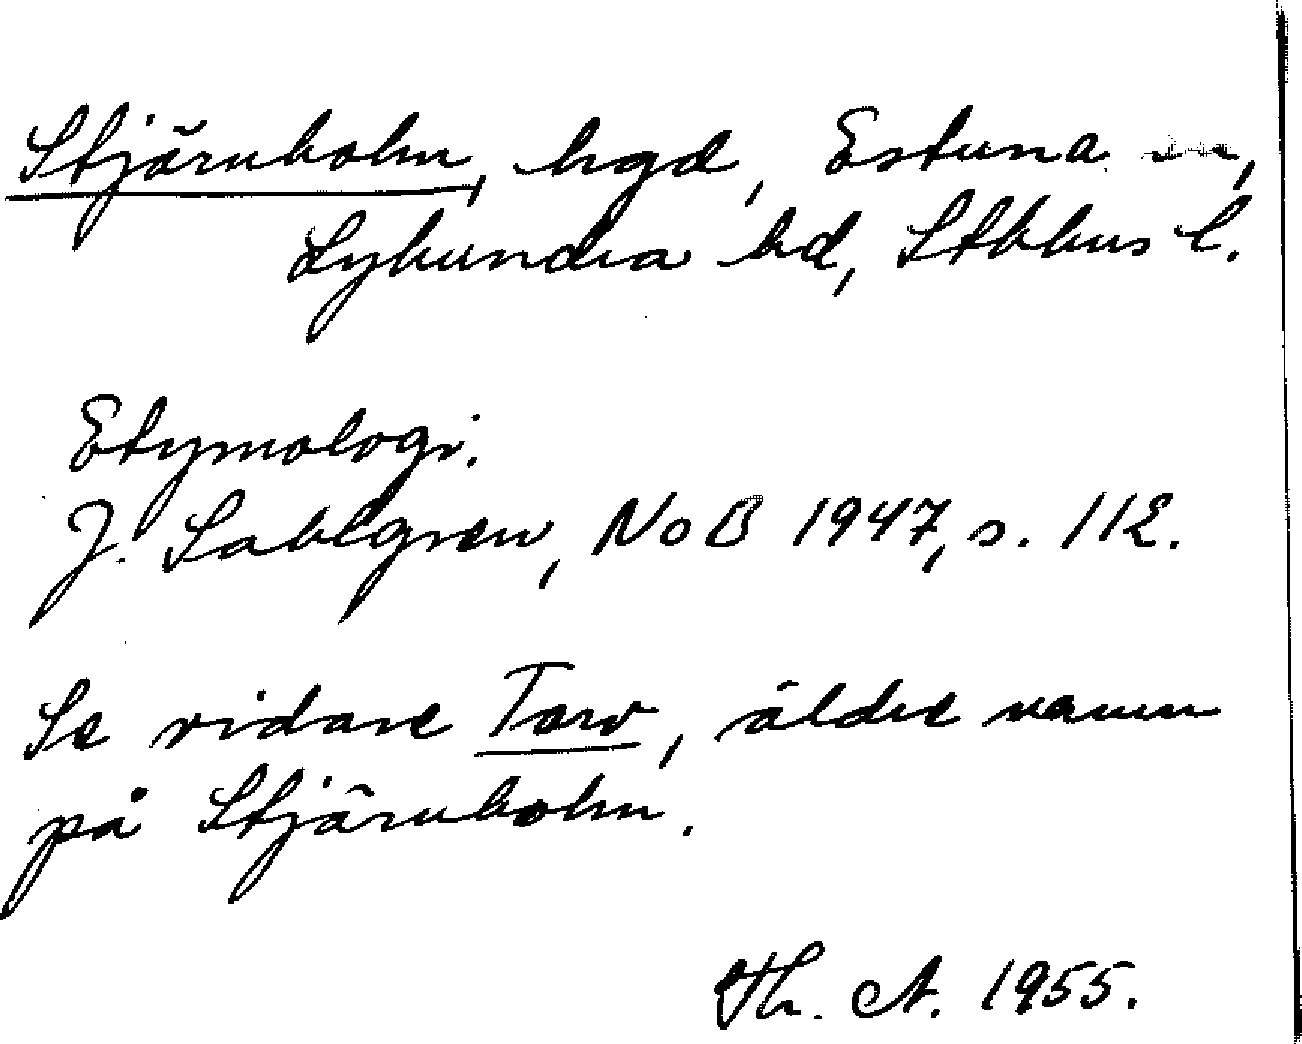 Stjärnholm, hgd, Estuna sn,
Lyhundra hd, Sthlms l.
Etymologi.
J. Sahlgren, NoB 1947, s. 112.
Se vidare Tarv, äldre namn
på Stjärnholm.
Th. A. 1955.